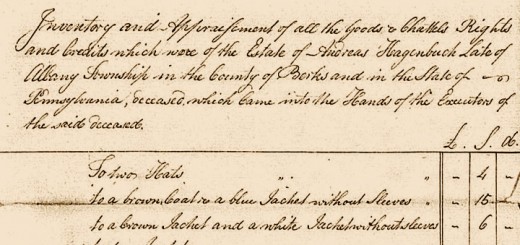 Inventory and Appraisement of all the Goods & Chattels Rights
and Credits which were of the Estate of Andreas Hagenbuch late of
Albany Township in the County of Berks and in the State of
Pennsylvania, deceased, which came into the Hands of the Executors of
the said deceased.
£. S. d.
To two Hats " . " - 4 -
to a brown Coat & a blue Jacket without Sleeves " - 15 -
to a brown Jacket and a white Jacket without sleeves - 6 -